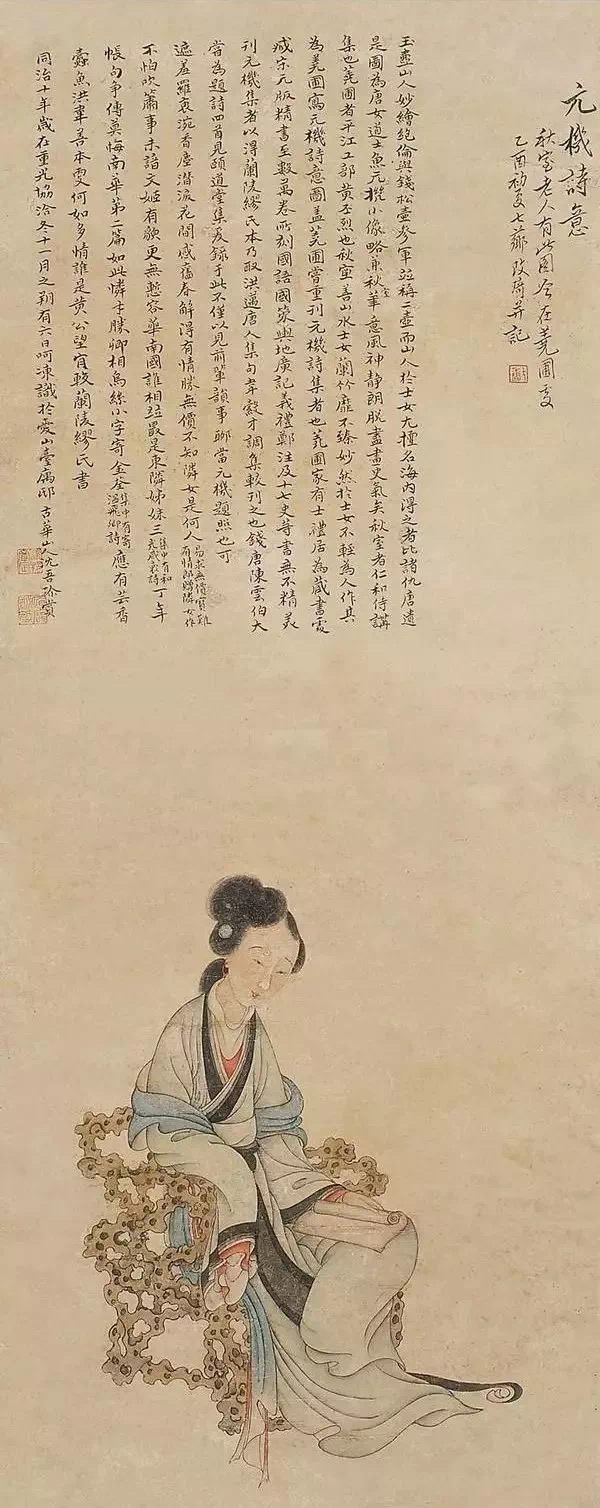 元機詩意
秋室老人有此圖今在蕘圃處
乙酉初夏七薌改琦并記
玉壺山人妙繪絕倫與錢松壺參軍竝稱二壺而山人於士女尤擅名海內得之者比諸仇唐遺
是圖為唐女道士魚元機小像略兼秋華意風神靜朗脫盡畫史氣矣秋室者仁和侍講
集也蕘圃者平江工部黃丕烈也秋室善山水士女蘭竹靡不臻妙然於士女不輕為人作其
為蕘圃寫元機詩意圖蓋蕘圃嘗重刊元機詩集者也蕘圃家有士禮居為藏書處
咸宋元版精書至數萬卷所刻國語國策輿地廣記義禮鄭注及十七史等書無不精美
刊元機集者以得蘭陵繆氏本乃取洪邁唐人集句韋縠才調集較刊之也錢唐陳雲伯大
當為題詩四首見頤道堂集爰錄于此不僅以見前輩韻事聊當元機題照也可
遮羞羅裒涴香塵潛淚花間感舊春解得有情勝無價不知隣女是何人易求無價寶難有情郎贈隣女作
不怕吹簫事未諧文姬有歌更無容華南國誰相竝最是東隣姊妹三集中有和光威裒詩丁年
帳句爭傳莫悔南華第二篇如此憐才勝卿相烏絲小字寄金荃集中有寄溫飛卿詩應有芸香
蠹魚洪韋善本更何如多情誰是黃公望宵較蘭陵繆氏書
同治十年歲在重光協洽冬十一月之朔有六日呵凍識於愛山臺寓邸古華山人沈吾